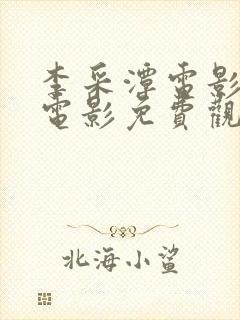 李采潭電影
電影免費觀
北海小鯊